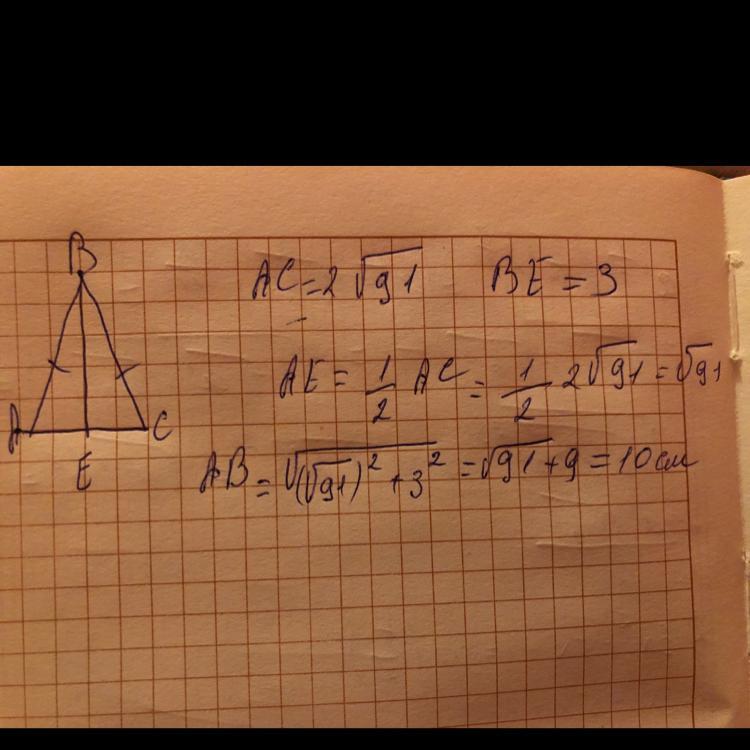 B
AC = 2√91 BE = 3
AE = 1/2 AC = 1/2 2√91 = √91
A C
E
AB = √((√91)² + 3²) = √91 + 9 = 10 см